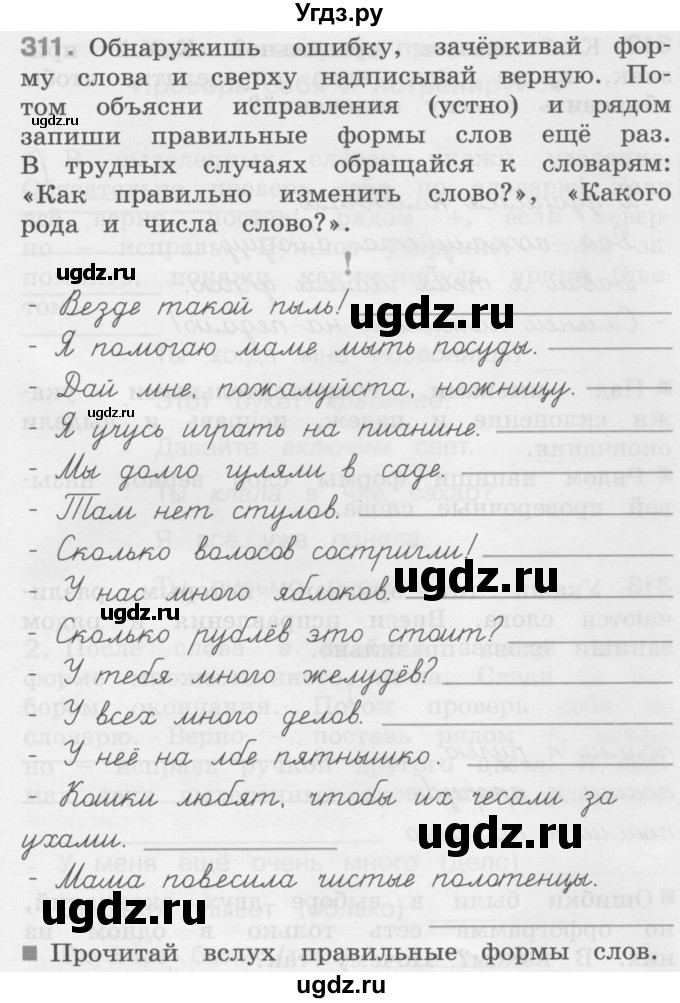 Угдз.ру
311. Обнаружишь ошибку, зачёркивай фор-
му слова и сверху надписывай верную. По-
том объясни исправления (устно) и рядом
запиши правильные формы слов ещё раз.
В трудных случаях обращайся к словарям:
«Как правильно изменить слово?», «Какого
рода и числа слово?».
!
ugdz.ru
- Везде такой пыль!
ugdz.ru
- Я помогаю маме мыть посуды.
- Дай мне, пожалуйста, ножницу.
ugdz.ru
- Я учусь играть на пианине.
- Мы долго гуляли в саде.
- Там нет стулов.
- Сколько волосов состригли!
ugdz.ru
- У нас много яблоков.
ugdz.ru
- Сколько рублёв это стоит?
- У тебя много желудёв?
- У всех много делов.
- У неё на лбе пятнышко.
- Кошки любят, чтобы их чесали за
ugdz.ru
ухами.
- Маша повесила чистые полотенцы.
ugdz.ru
Прочитай вслух правильные формы слов.